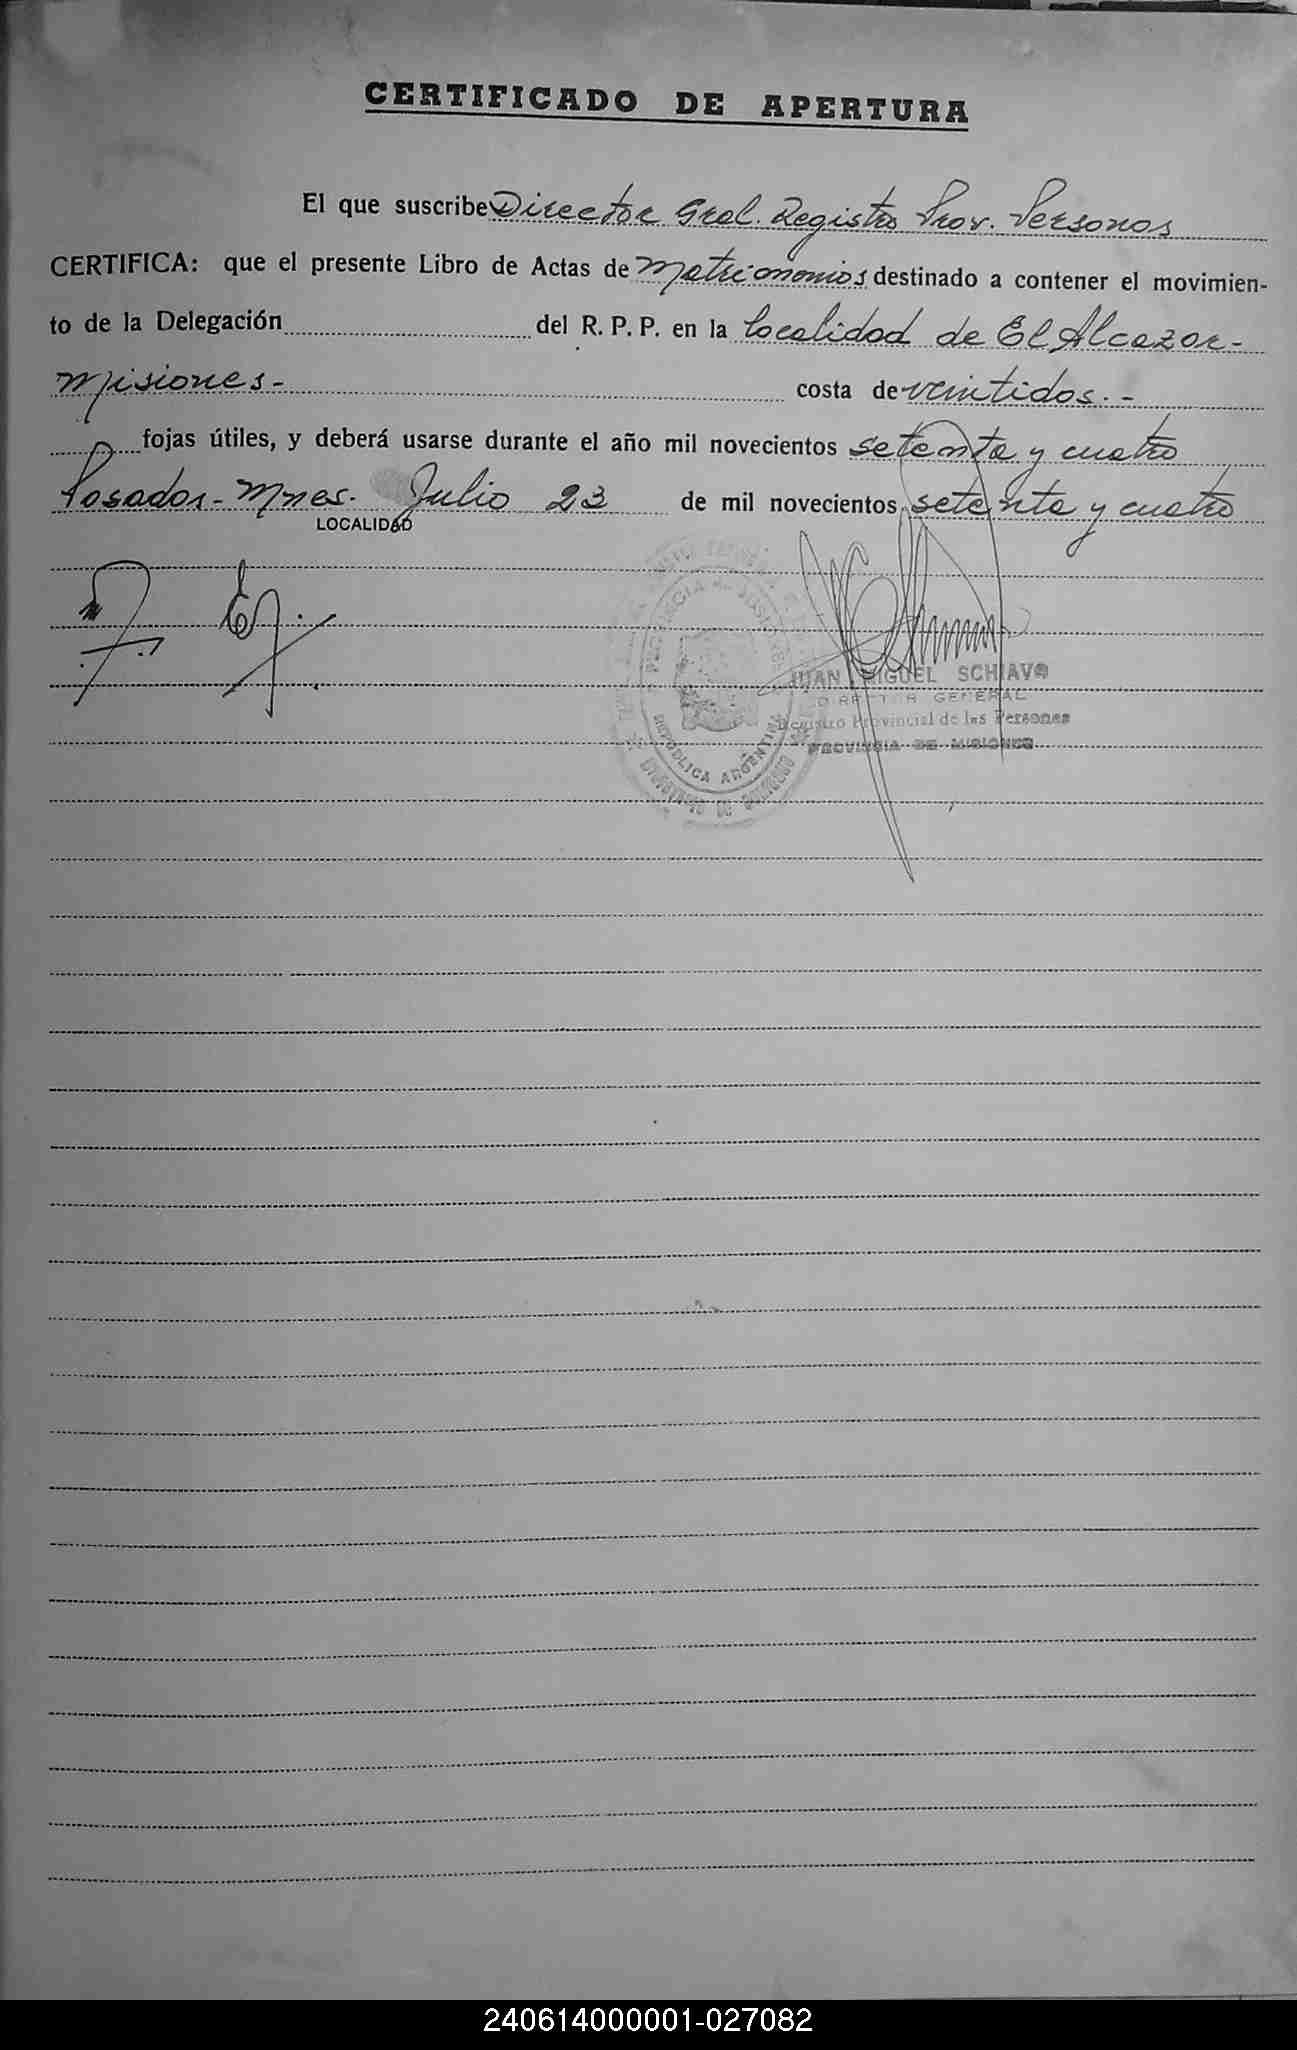 CERTIFICADO DE APERTURA
El que suscribe Director Gral. Registro Prov. Personas
CERTIFICA: que el presente Libro de Actas de Matrimonios destinado a contener el movimien-
to de la Delegación del R. P. P. en la localidad de El Alcazar-
Misiones.- costa de veintidos.-
fojas útiles, y deberá usarse durante el año mil novecientos setenta y cuatro
Posadas- Mnes. Julio 23 de mil novecientos setenta y cuatro
LOCALIDAD
JUAN MIGUEL SCHIAVO
DIRECTOR GENERAL
Registro Provincial de las Personas
PROVINCIA DE MISIONES
PROVINCIA DE MISIONES
REPUBLICA ARGENTINA
240614000001-027082